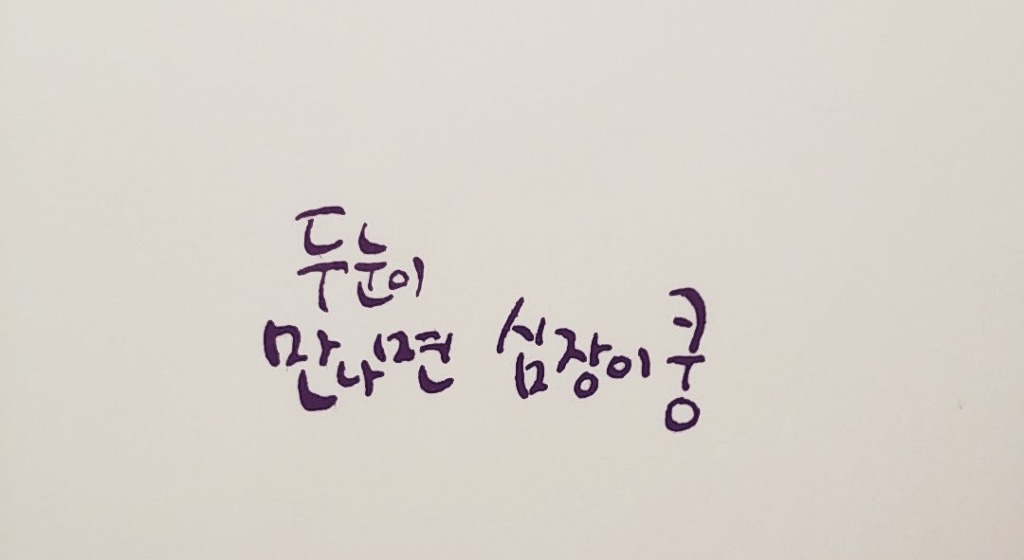 두눈이
만나면 심장이 쿵